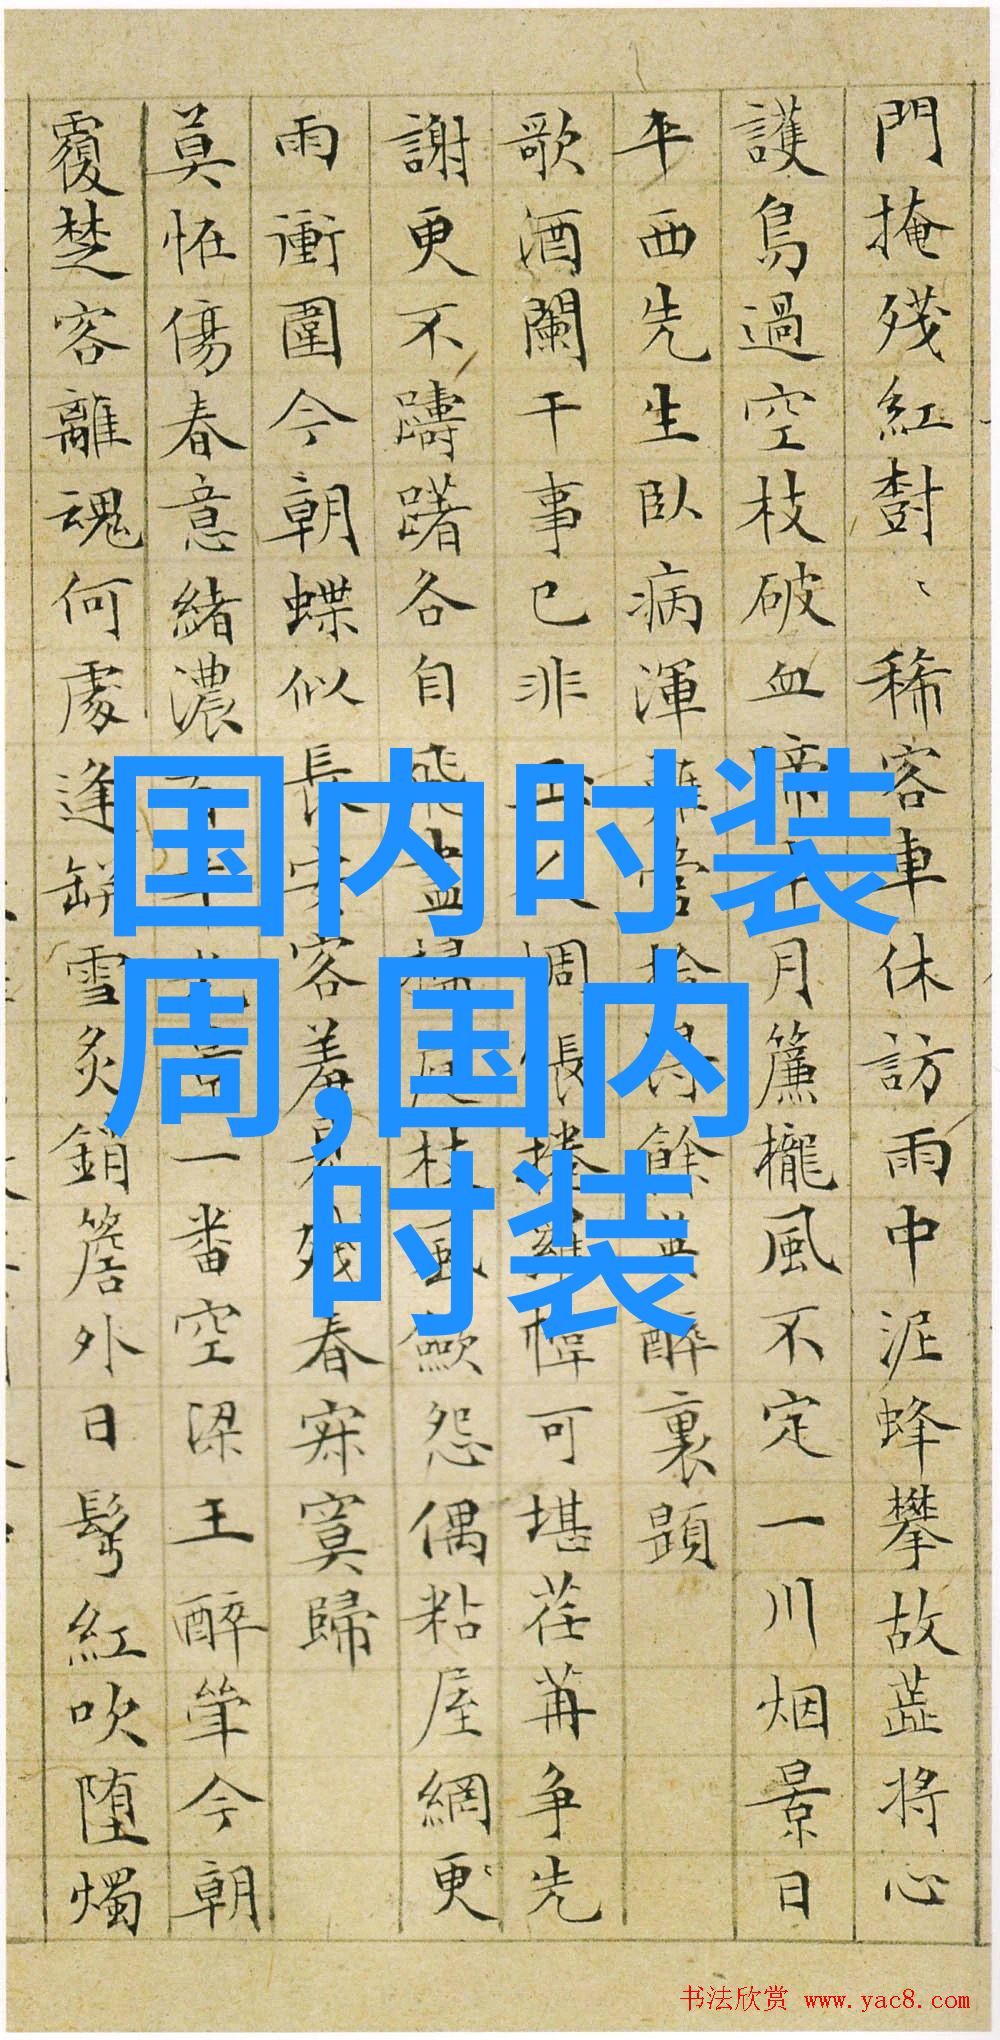 門掩殘紅樹〻稀客車休訪雨中泥蜂攀故蕋將心
護鳥過空枝破血啼 月簾櫳風不定一川烟景日
平西先生臥病渾 醉裏題
歌酒闌干事已非 惆悵捲羅幃可堪荏苒争先
謝更不躊躇各自飛 枝風歛怨偶粘屋網更
雨衝圍今朝蝶似長安客羞 殘春寂寞歸
莫怪傷春意緒濃 一番空梁王醉筆今朝
覆楚客離魂何處逢 雪炙銷簷外日 紅吹堕燭
国内时装
周,国内
时装
书法欣赏 www.yac8.com